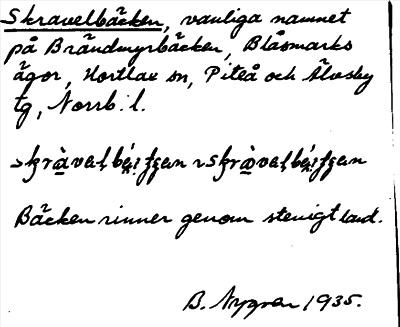 Skravelbäcken, vanliga namnet
på Brändmyrbäcken, Blåsmarks
ägor, Hortlax sn, Piteå och Älvsby
tg, Norrb. l.
Bäcken rinner genom stenigt land.
B. Nygren 1935.